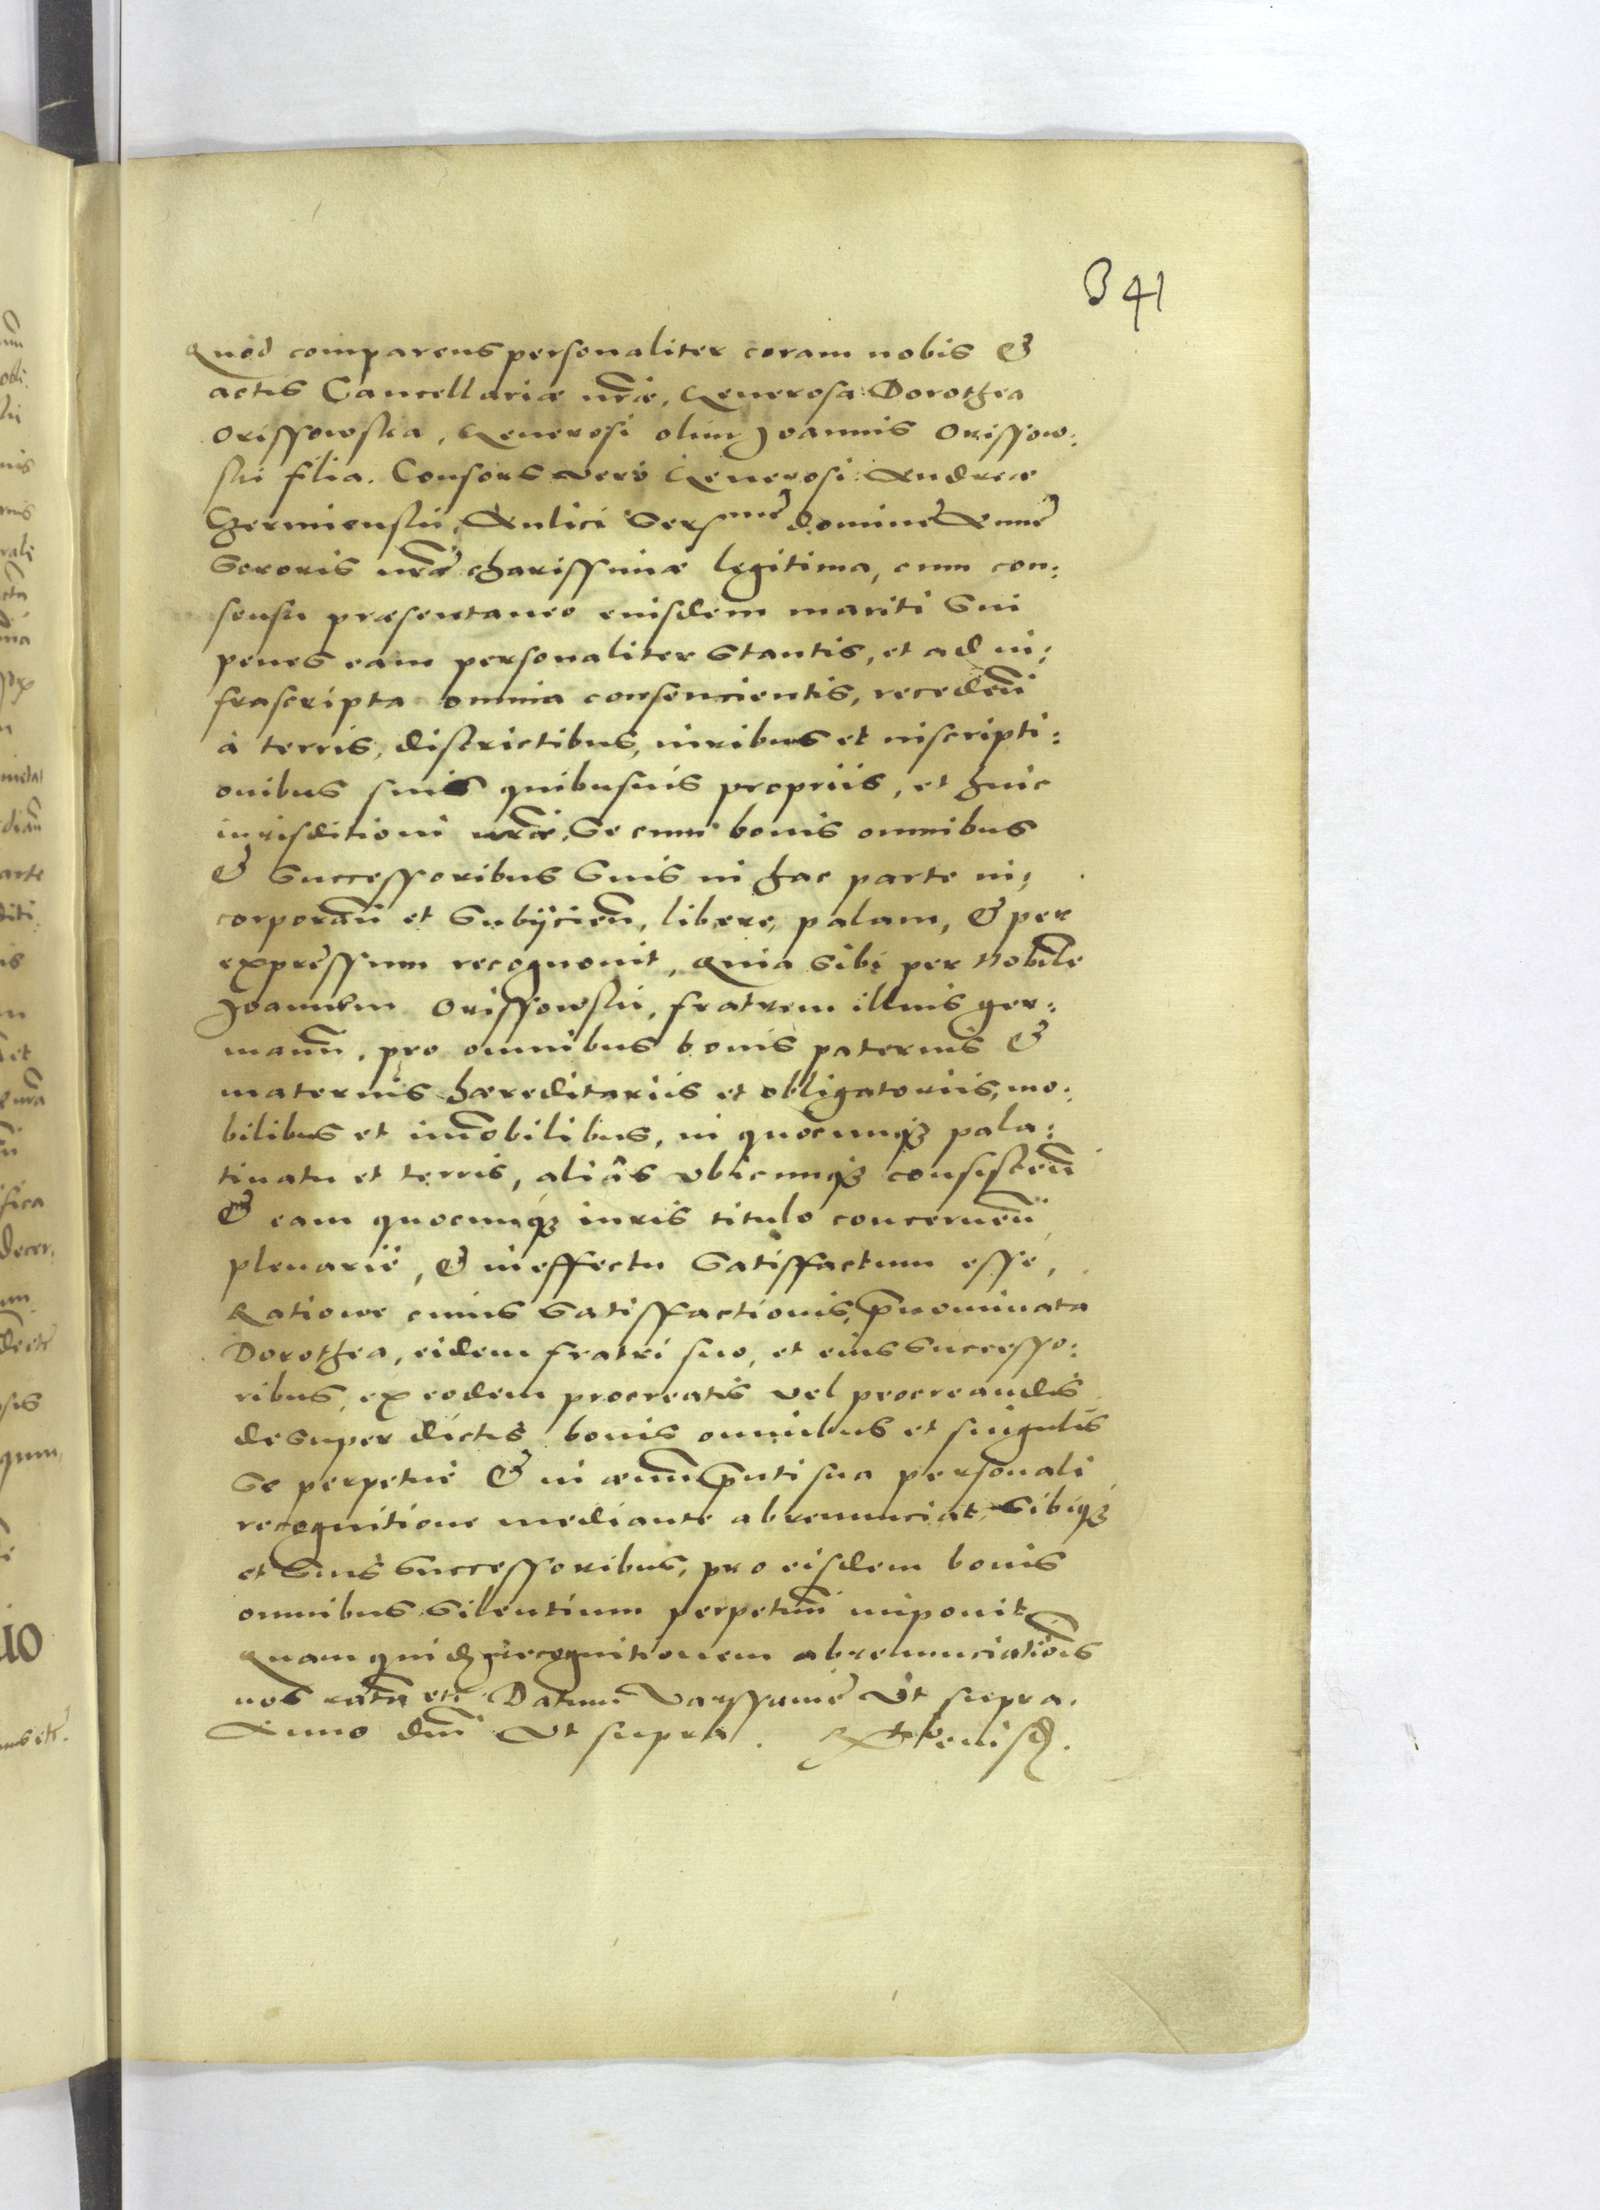 341
Quod comparens personaliter coram nobis &
actis Cancellariæ nr̃æ, Generosa Dorothea
Orissowska, Generosi olim Joannis Orissow:
ski filia. Consors vero Generosi Andreæ
Czerminski, Aulici Sermæ dominæ Annæ
Sororis nr̃æ charissimæ legitima, cum con:
sensu præsentaneo eiusdem mariti sui
penes eam personaliter stantis, et ad in:
frascripta omnia consencientis, receden̄
à terris, districtibus, iuribus et inscripti:
onibus suis quibusuis propriis, et huic
iurisditioni nr̃æ, Se cum bonis omnibus
& successoribus suis in hac parte in:
corporan̄ et subijcien̄, libere, palam, & per
expressum recognouit, Quia sibi per Nobilē
Joannem Orissowski, fratrem illius ger:
manū, pro omnibus bonis paternis &
maternis hæreditariis et obligatoriis, mo:
bilibus et im̄obilibus, in quocunq3 pala:
tinatu et terris, aliâs vbicunq3 consisten̄
& eam quocunq3 iuris titulo concernen̄
plenariè, & in effectu satisffactum esse,
Ratione cuius satisffactionis, p̄nominata
Dorothea, eidem fratri suo, et eius successo:
ribus, ex eodem procreatis vel procreandis
de super dictis bonis omnibus et singulis
Se perpetuè & in æuum p̄nti sua personali
recognitione mediante abrenunciat, sibiq3
et suis successoribus, pro eisdem bonis
omnibus silentium perpetuū imponit
Quam quidē recognitionem abrenunciationis
nos ratā etc̃. Datum Varssauiæ Vt supra.
Anno dn̄i Vt supra.